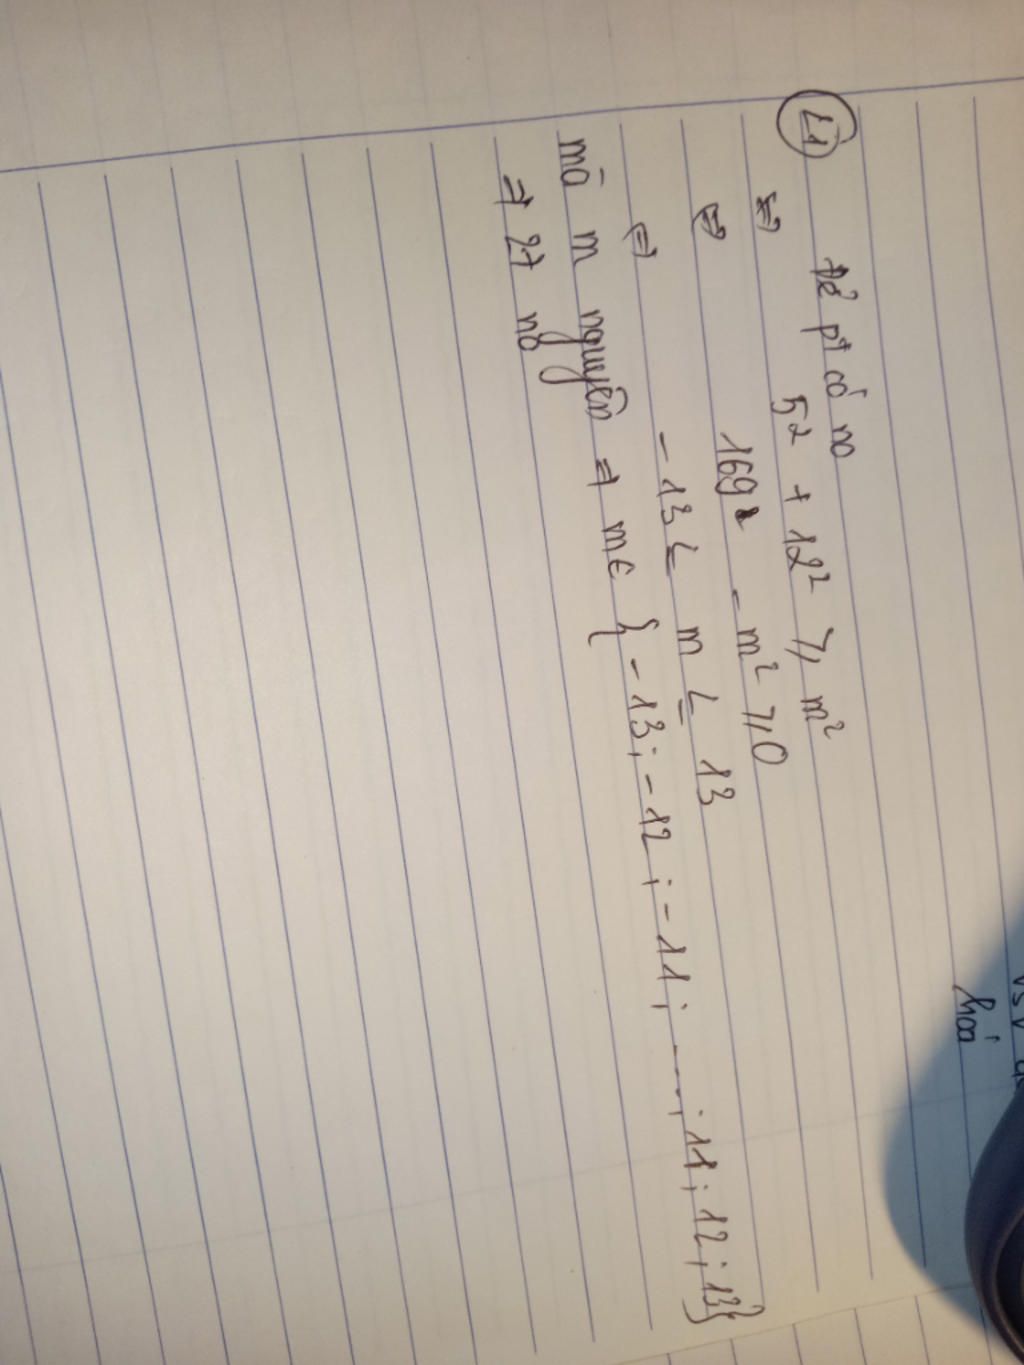 L1 để pt có no
⇔ 5² + 12² ≥ m²
⇔ 169 - m² ≥ 0
⇔ - 13 ≤ m ≤ 13
mà m nguyên ⇒ m ∈ { - 13 ; - 12 ; - 11 ; ... ; 11 ; 12 ; 13 }
⇒ 27 no
hoá